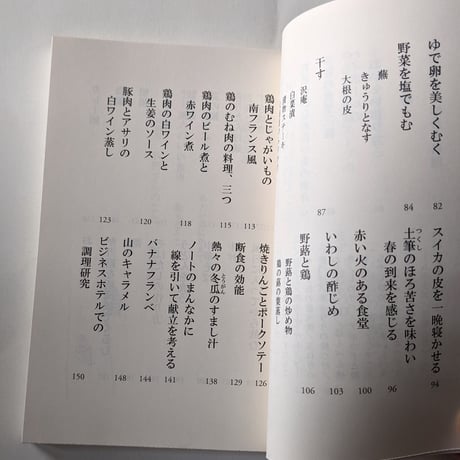 ゆで卵を美しくむく 82
野菜を塩でもむ 84
蕪
きゅうりとなす
大根の皮
干す 87
沢庵
白菜漬
漬物ステーキ
スイカの皮を一晩寝かせる 94
土筆のほろ苦さを味わい
つくし
春の到来を感じる 96
赤い火のある食堂 100
いわしの酢じめ 103
野蕗と鶏 106
野蕗と鶏の炒め物
鶏の蕗の葉蒸し
鶏肉とじゃがいもの
南フランス風 113
鶏のむね肉の料理、三つ 115
鶏肉のビール煮と
赤ワイン煮 118
鶏肉の白ワインと
生姜のソース 120
豚肉とアサリの
白ワイン蒸し 123
焼きりんごとポークソテー 126
断食の効能 129
熱々の冬瓜のすまし汁 138
とうがん
ノートのまんなかに
線を引いて献立を考える 141
バナナフランベ 144
山のキャラメル 148
ビジネスホテルでの
調理研究 150